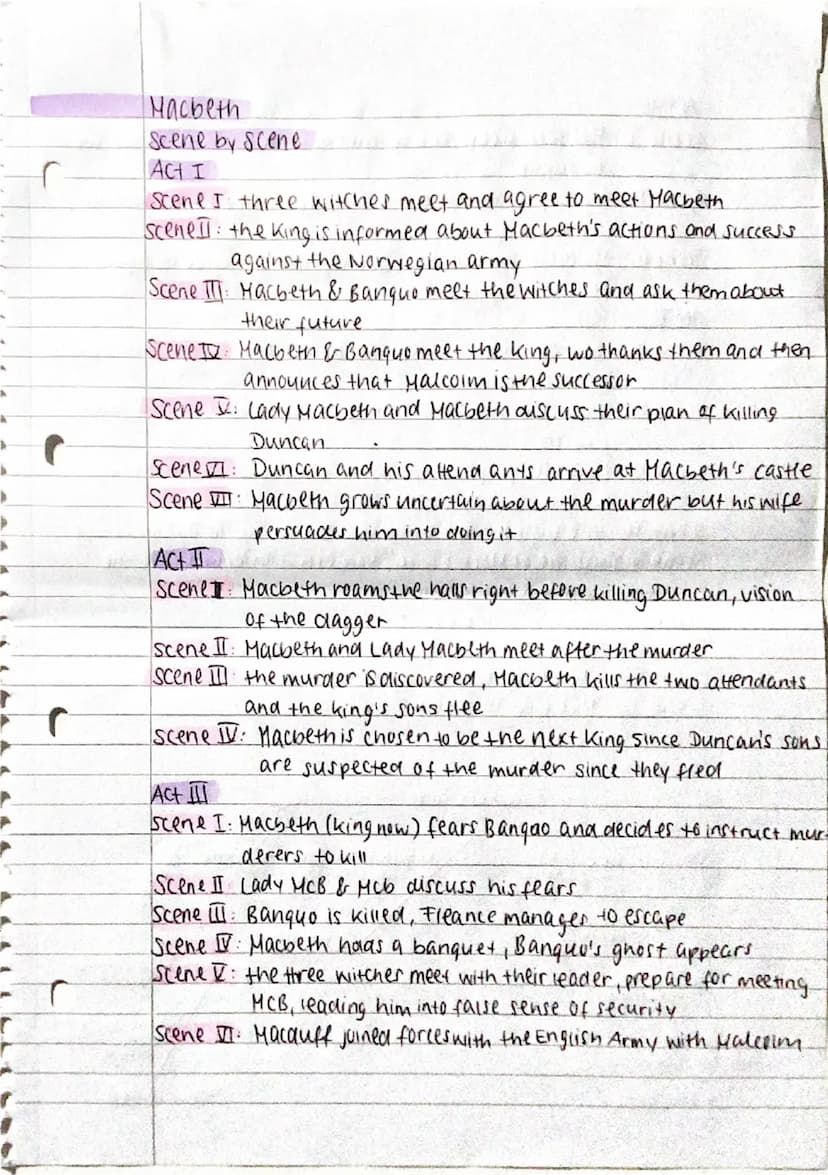 Macbeth
Scene by Scene
Act I
Scene I: three witches meet and agree to meet Macbeth
Scene II: the King is informed about Macbeth's actions and success
against the Norwegian army
Scene III: Macbeth & Banquo meet the witches and ask them about
their future
Scene IV: Macbeth & Banquo meet the King, wo thanks them and then
announces that Malcolm is the successor
Scene V: Lady Macbeth and Macbeth discuss their plan of killing
Duncan
Scene VI: Duncan and his attendants arrive at Macbeth's castle
Scene VII: Macbeth grows uncertain about the murder but his wife
persuades him into doing it
Act II
Scene I: Macbeth roams the halls right before killing Duncan, vision
of the dagger
Scene II: Macbeth and Lady Macbeth meet after the murder
Scene III: the murder is discovered, Macbeth kills the two attendants
and the king's sons flee
Scene IV: Macbeth is chosen to be the next King since Duncan's sons
are suspected of the murder since they fled
Act III
Scene I: Macbeth (king now) fears Banquo and decides to instruct mur-
derers to kill
Scene II: Lady McB & Mcb discuss his fears
Scene III: Banquo is killed, Fleance manages to escape
Scene IV: Macbeth holds a banquet, Banquo's ghost appears
Scene V: the three witches meet with their leader, prepare for meeting
MCB, leading him into false sense of security
Scene VI: Macduff joined forces with the English Army with Malcolm